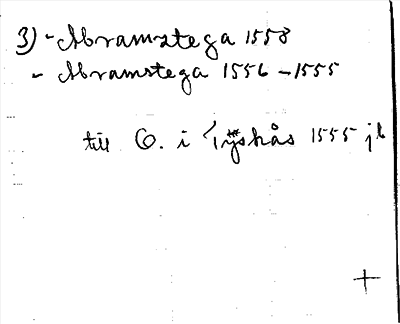 3) - Abramstega 1558
- Abramstega 1556 - 1555
till O. i Tyskås 1555 jb